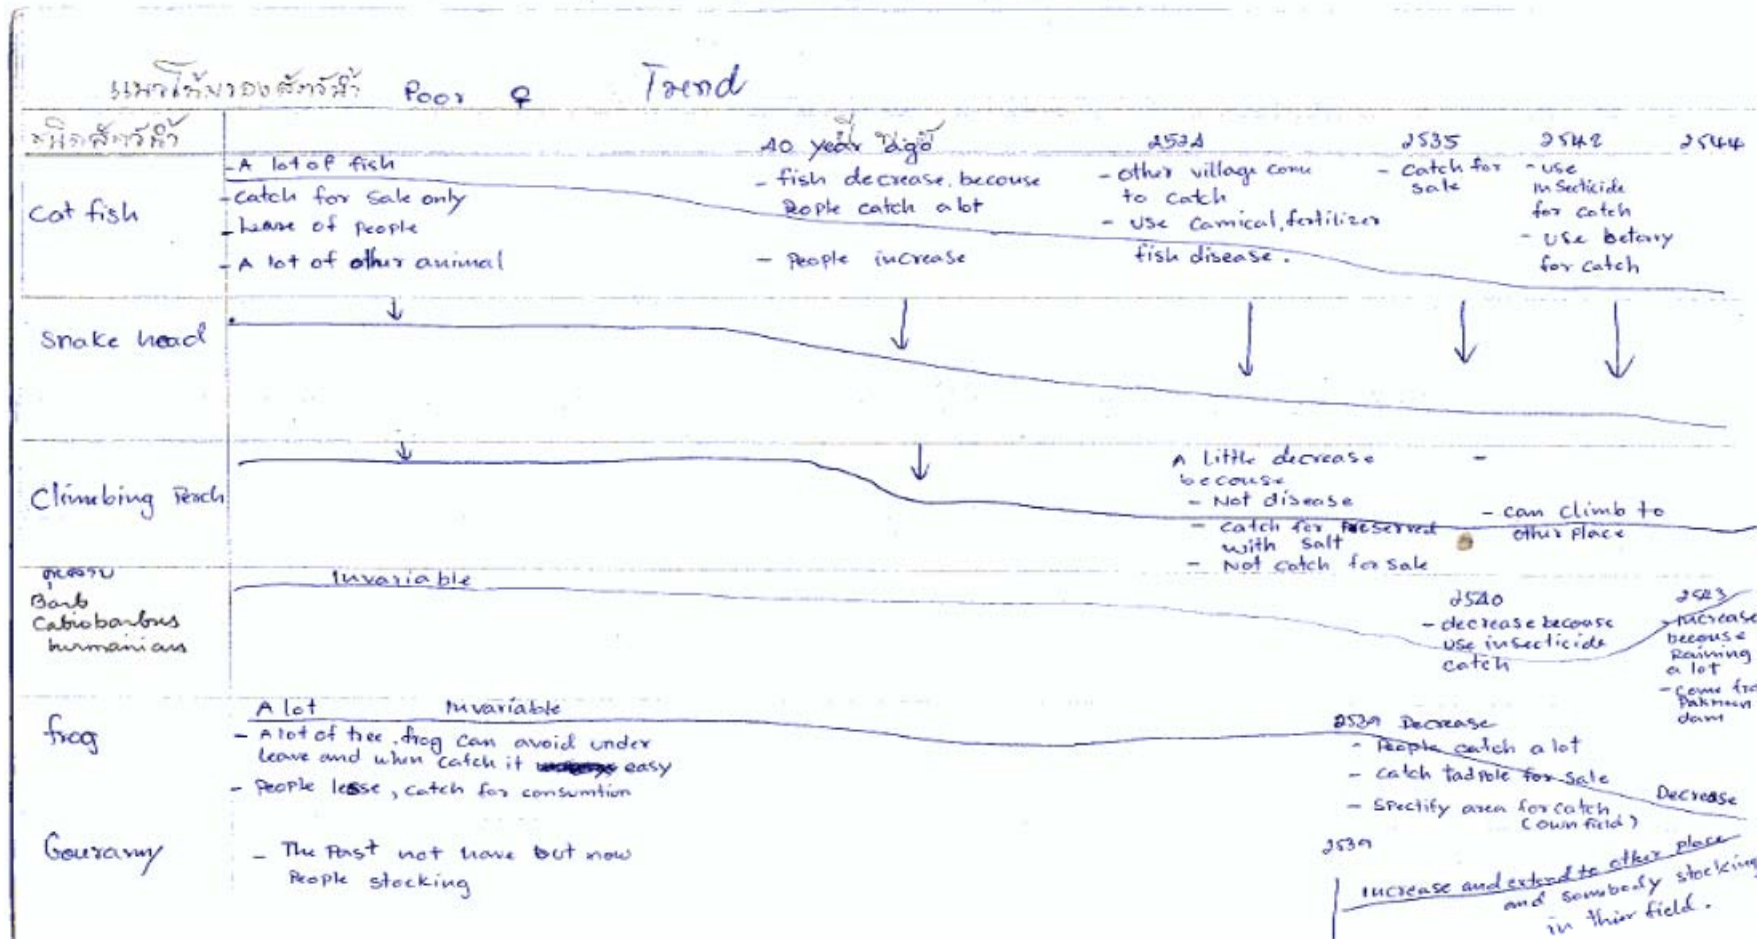 แนวโน้มของสัตว์น้ำ Poor ♀ Trend
ชนิดสัตว์น้ำ
40 year ago 2524 2535 2542 2544
Cat fish
- A lot of fish
- Catch for sale only
- Lease of people
- A lot of other animal
- fish decrease, becouse
People catch a lot
- People increase
- other village come
to catch
- use camical, fertilizer
fish disease.
- Catch for
sale
- use
insecticide
for catch
- use betary
for catch
Snake head
Climbing Perch
A little decrease
becouse
- Not disease
- catch for preserved
with salt
- Not catch for sale
-
- can climb to
other place
Barb
Invariable
2540
- decrease becouse
use insecticide
catch
2543
- increase
becouse
Raining
a lot
- Come
dam
frog
A lot Invariable
- A lot of tree, frog can avoid under
leave and when catch it easy
- People lesse, catch for consumtion
2539 Decrease
- People catch a lot
- catch tadpole for sale
- Spectify area for catch
(own field)
Decrease
Gouramy
- The Past not have but now
People stocking
2539
increase and extend to other place
and sombody stocking
in thier field.